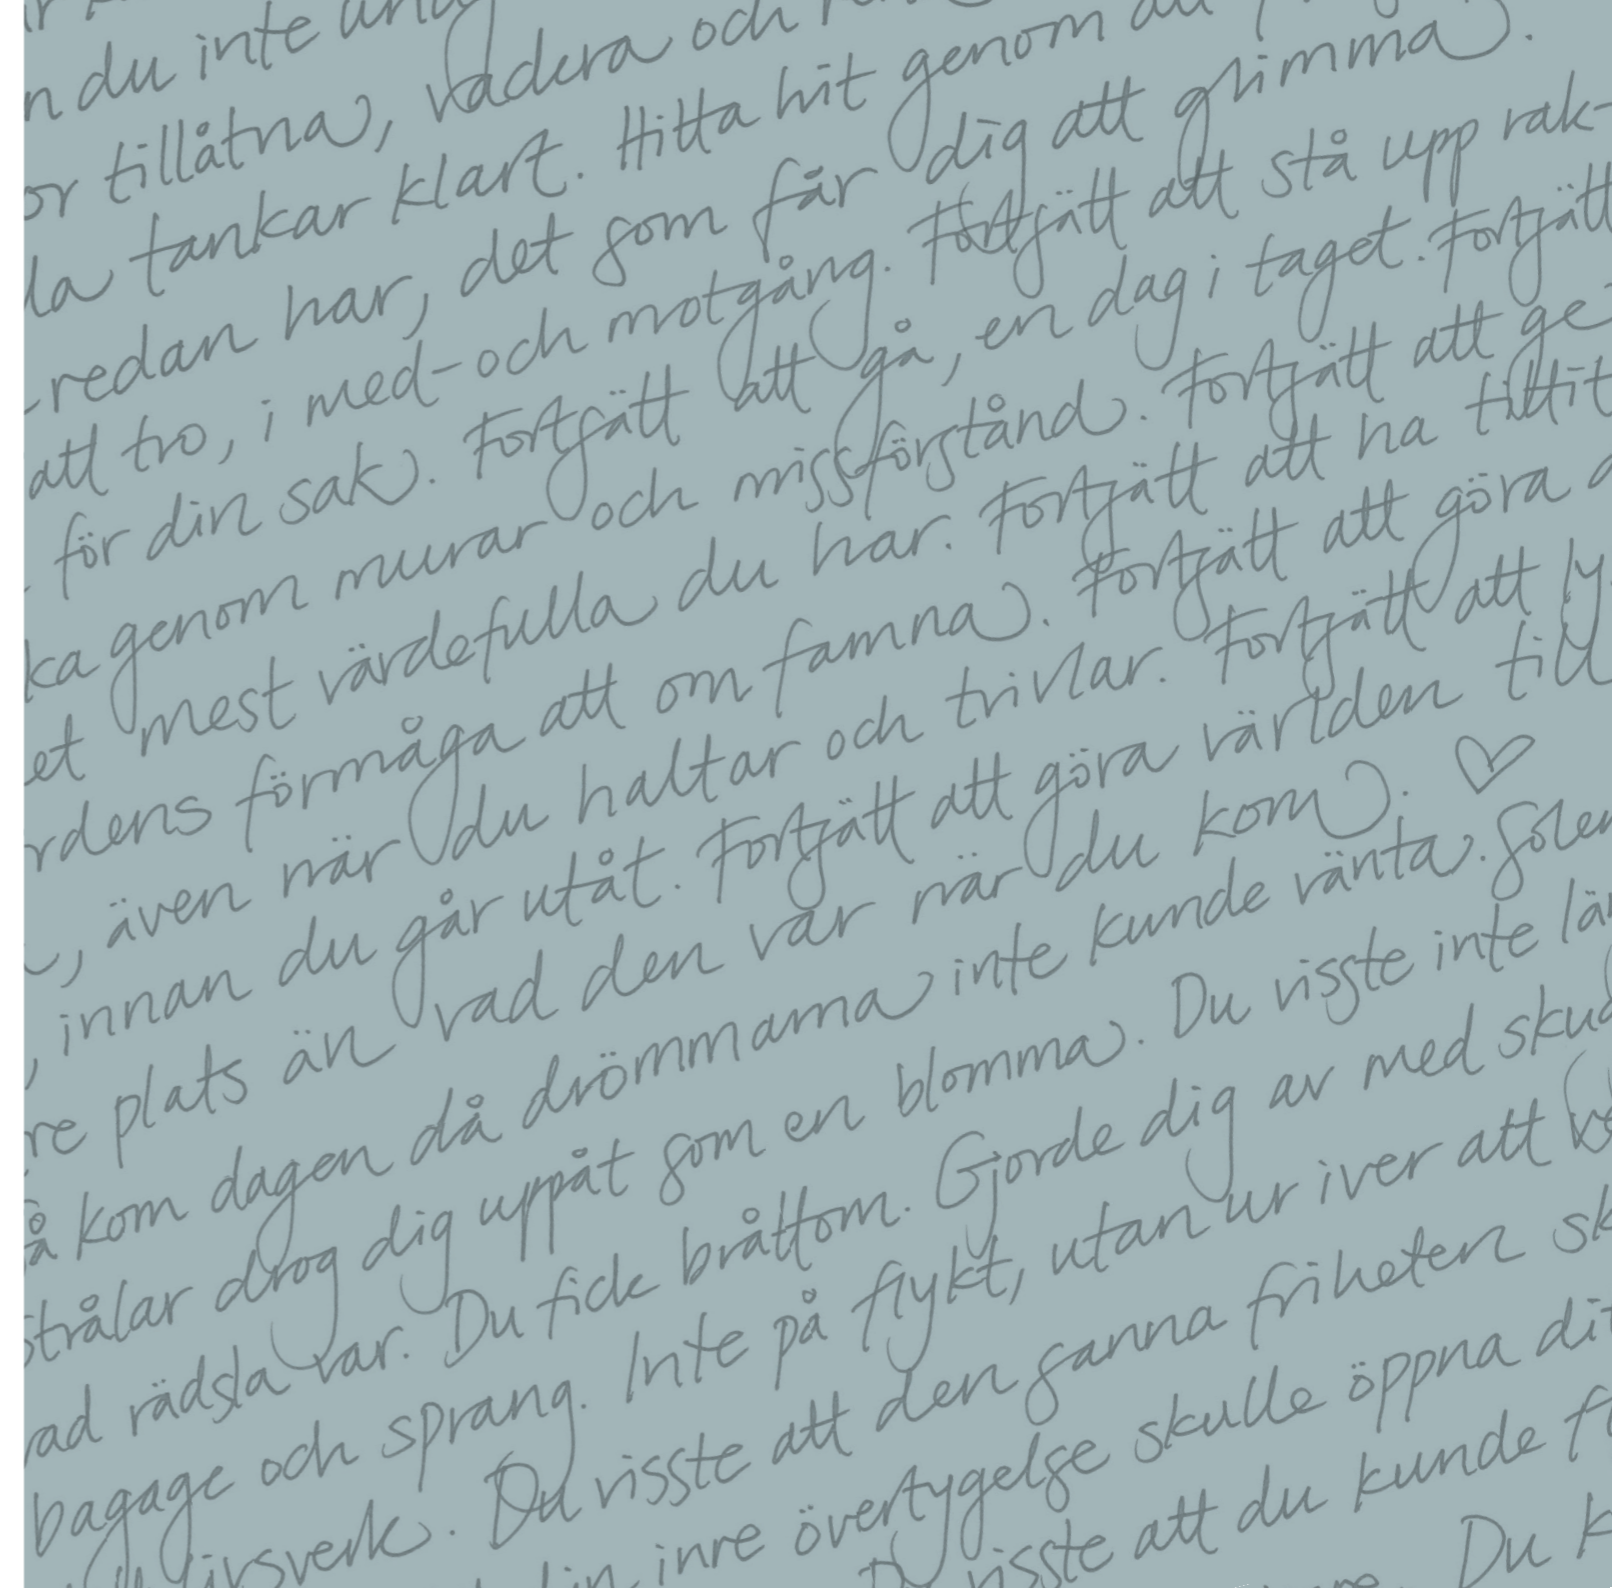 n du inte
or tillåtna, vädera och
la tankar klart. Hitta hit genom att
redan har, det som får dig att glimma.
att tro, i med- och motgång. Fortsätt att stå upp rak-
för din sak. Fortsätt att gå, en dag i taget. Fortsätt
ka genom murar och missförstånd. Fortsätt att ge
et mest värdefulla du har. Fortsätt att ha tillit
rdens förmåga att om famna. Fortsätt att göra
, även när du haltar och trivlar. Fortsätt att ly
, innan du går utåt. Fortsätt att göra världen till
re plats än vad den var när du kom. ♡
å kom dagen då drömmarna inte kunde vänta. Solen
strålar drog dig uppåt som en blomma. Du visste inte län
ad rädsla var. Du fick bråttom. Gjorde dig av med skud
bagage och sprang. Inte på flykt, utan ur iver att
livsverk. Du visste att den sanna friheten sk
din inre övertygelse skulle öppna dit
visste att du kunde
Du k